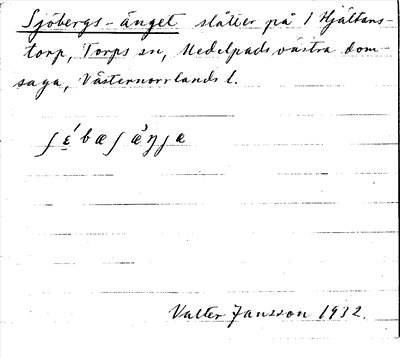 Sjöbergs-änget slåtter på 1 Hjältans-
torp, Torps sn, Medelpads västra dom-
saga, Västernorrlands l.
Valter Jansson 1932.